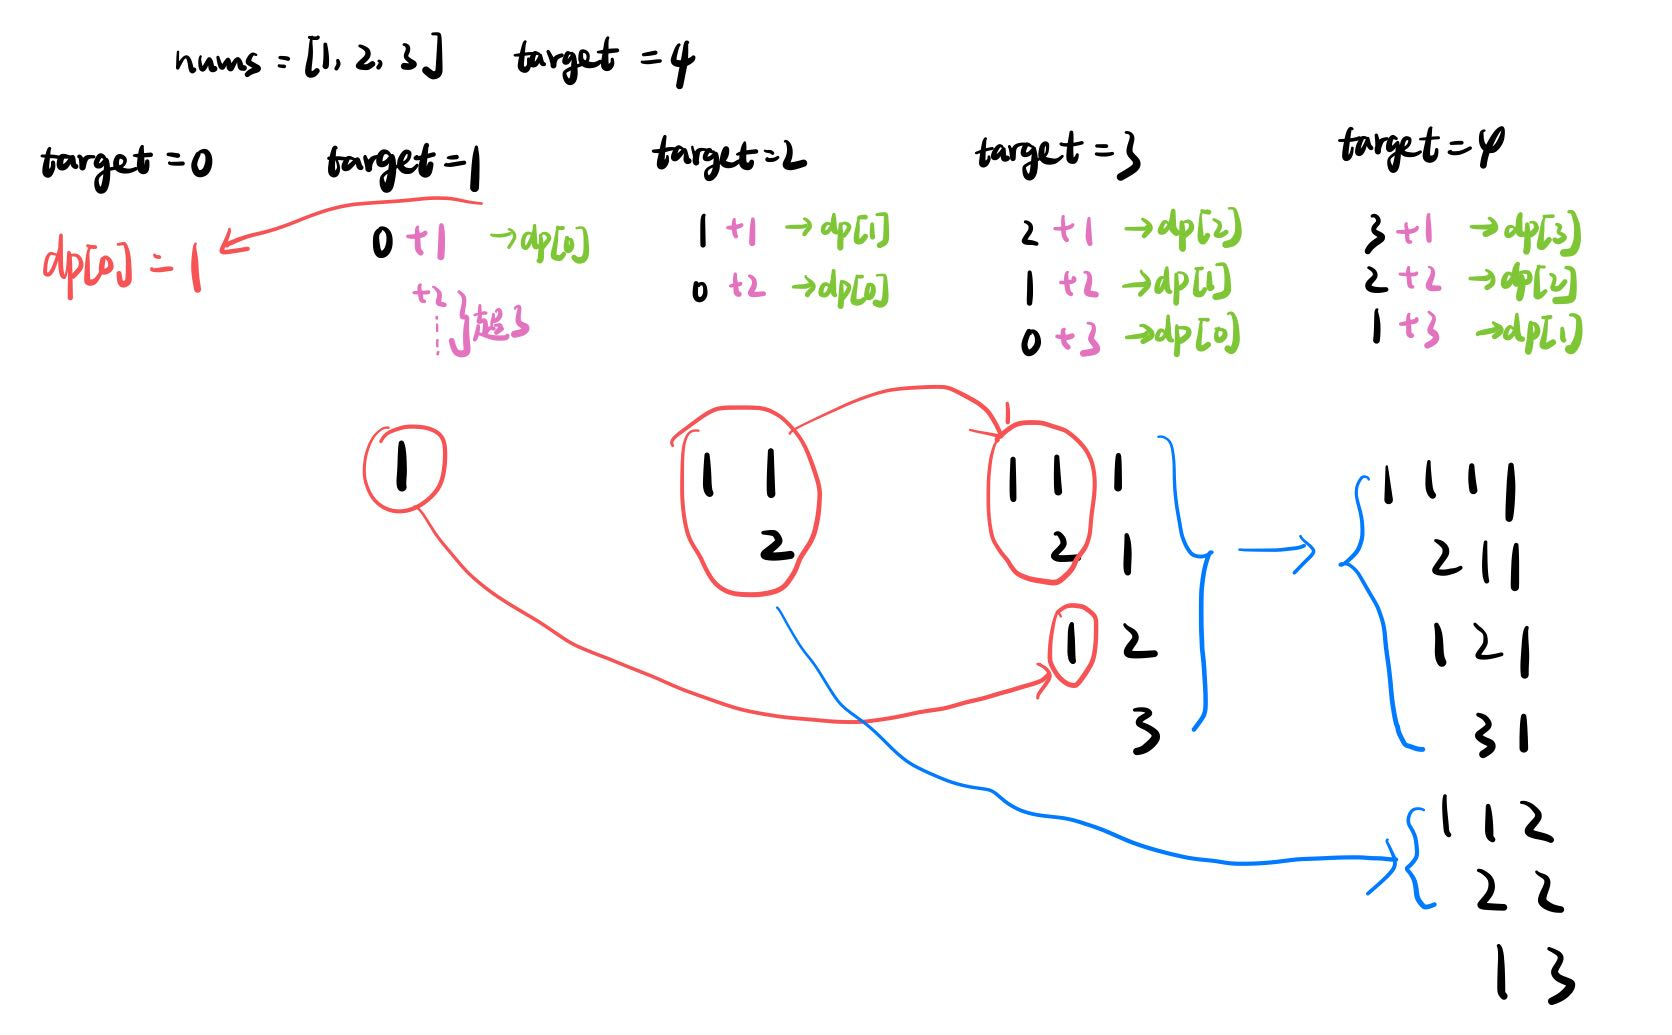 nums = [1, 2, 3] target = 4
target = 0
dp[0] = 1
target = 1
0 +1 → dp[0]
+2
超了
target = 2
1 +1 → dp[1]
0 +2 → dp[0]
target = 3
2 +1 → dp[2]
1 +2 → dp[1]
0 +3 → dp[0]
target = 4
3 +1 → dp[3]
2 +2 → dp[2]
1 +3 → dp[1]
1
1 1
2
1 1 1
2 1
1 2
3
1 1 1 1
2 1 1
1 2 1
3 1
1 1 2
2 2
1 3